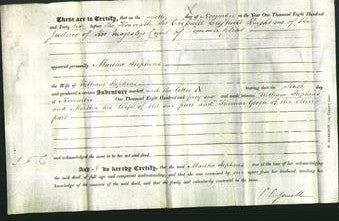 These are to Certify, that on the sixth day of November in the Year One Thousand Eight Hundred
and Forty before The Honorable Sir Cresswell Cresswell Knight one of the
Justices of Her Majestys Court of Common Pleas
appeared personally Martha Stephens
the Wife of William Stephens and
produced a certain Indenture marked with the letter A bearing date the Sixth day
of November One Thousand Eight Hundred and forty and made between William Stephens
and Martha his Wife of the one part and Thomas Green of the other
part
and acknowledged the same to be her act and deed.
AND I do hereby Certify, that the said Martha Stephens was at the time of her acknowledging
the said deed, of full age and competent understanding, and that she was examined by me apart from her husband, touching her
knowledge of the contents of the said deed, and that she freely and voluntarily consented to the same.
C Cresswell